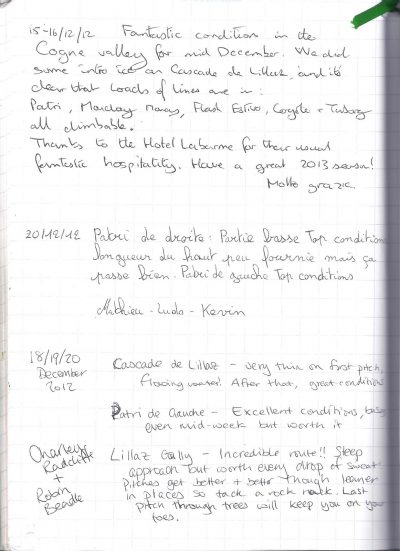 15-16/12/12 Fantastic condition in the
Cogne valley for mid December. We did
some intro ice on Cascade de Lillaz, and its
clear that loads of lines are in:
Patri, Monday Money, Flash Estivo, Cogne +
all climbable.
Thanks to the Hotel Labarme for their usual
fantastic hospitality. Have a great 2013 season!
Molto grazie
20/12/12 Patri de droite: Partie basse Top condition
longueur du haut peu fournie mais ça
passe bien. Patri de gauche Top conditions
Mathieu - Ludo - Kevin
18/19/20
December
2012
Cascade de Lillaz - very thin on first pitch,
flowing water! After that, great conditions
Patri de Gauche - Excellent conditions, busy
even mid-week but worth it
Charley Radcliffe
+
Robin Beadle
Lillaz Gully - Incredible route!! Steep
approach but worth every drop of sweat
Pitches get better + better though leaner
in places so tack a rock rack. Last
pitch through trees will keep you on your
toes.